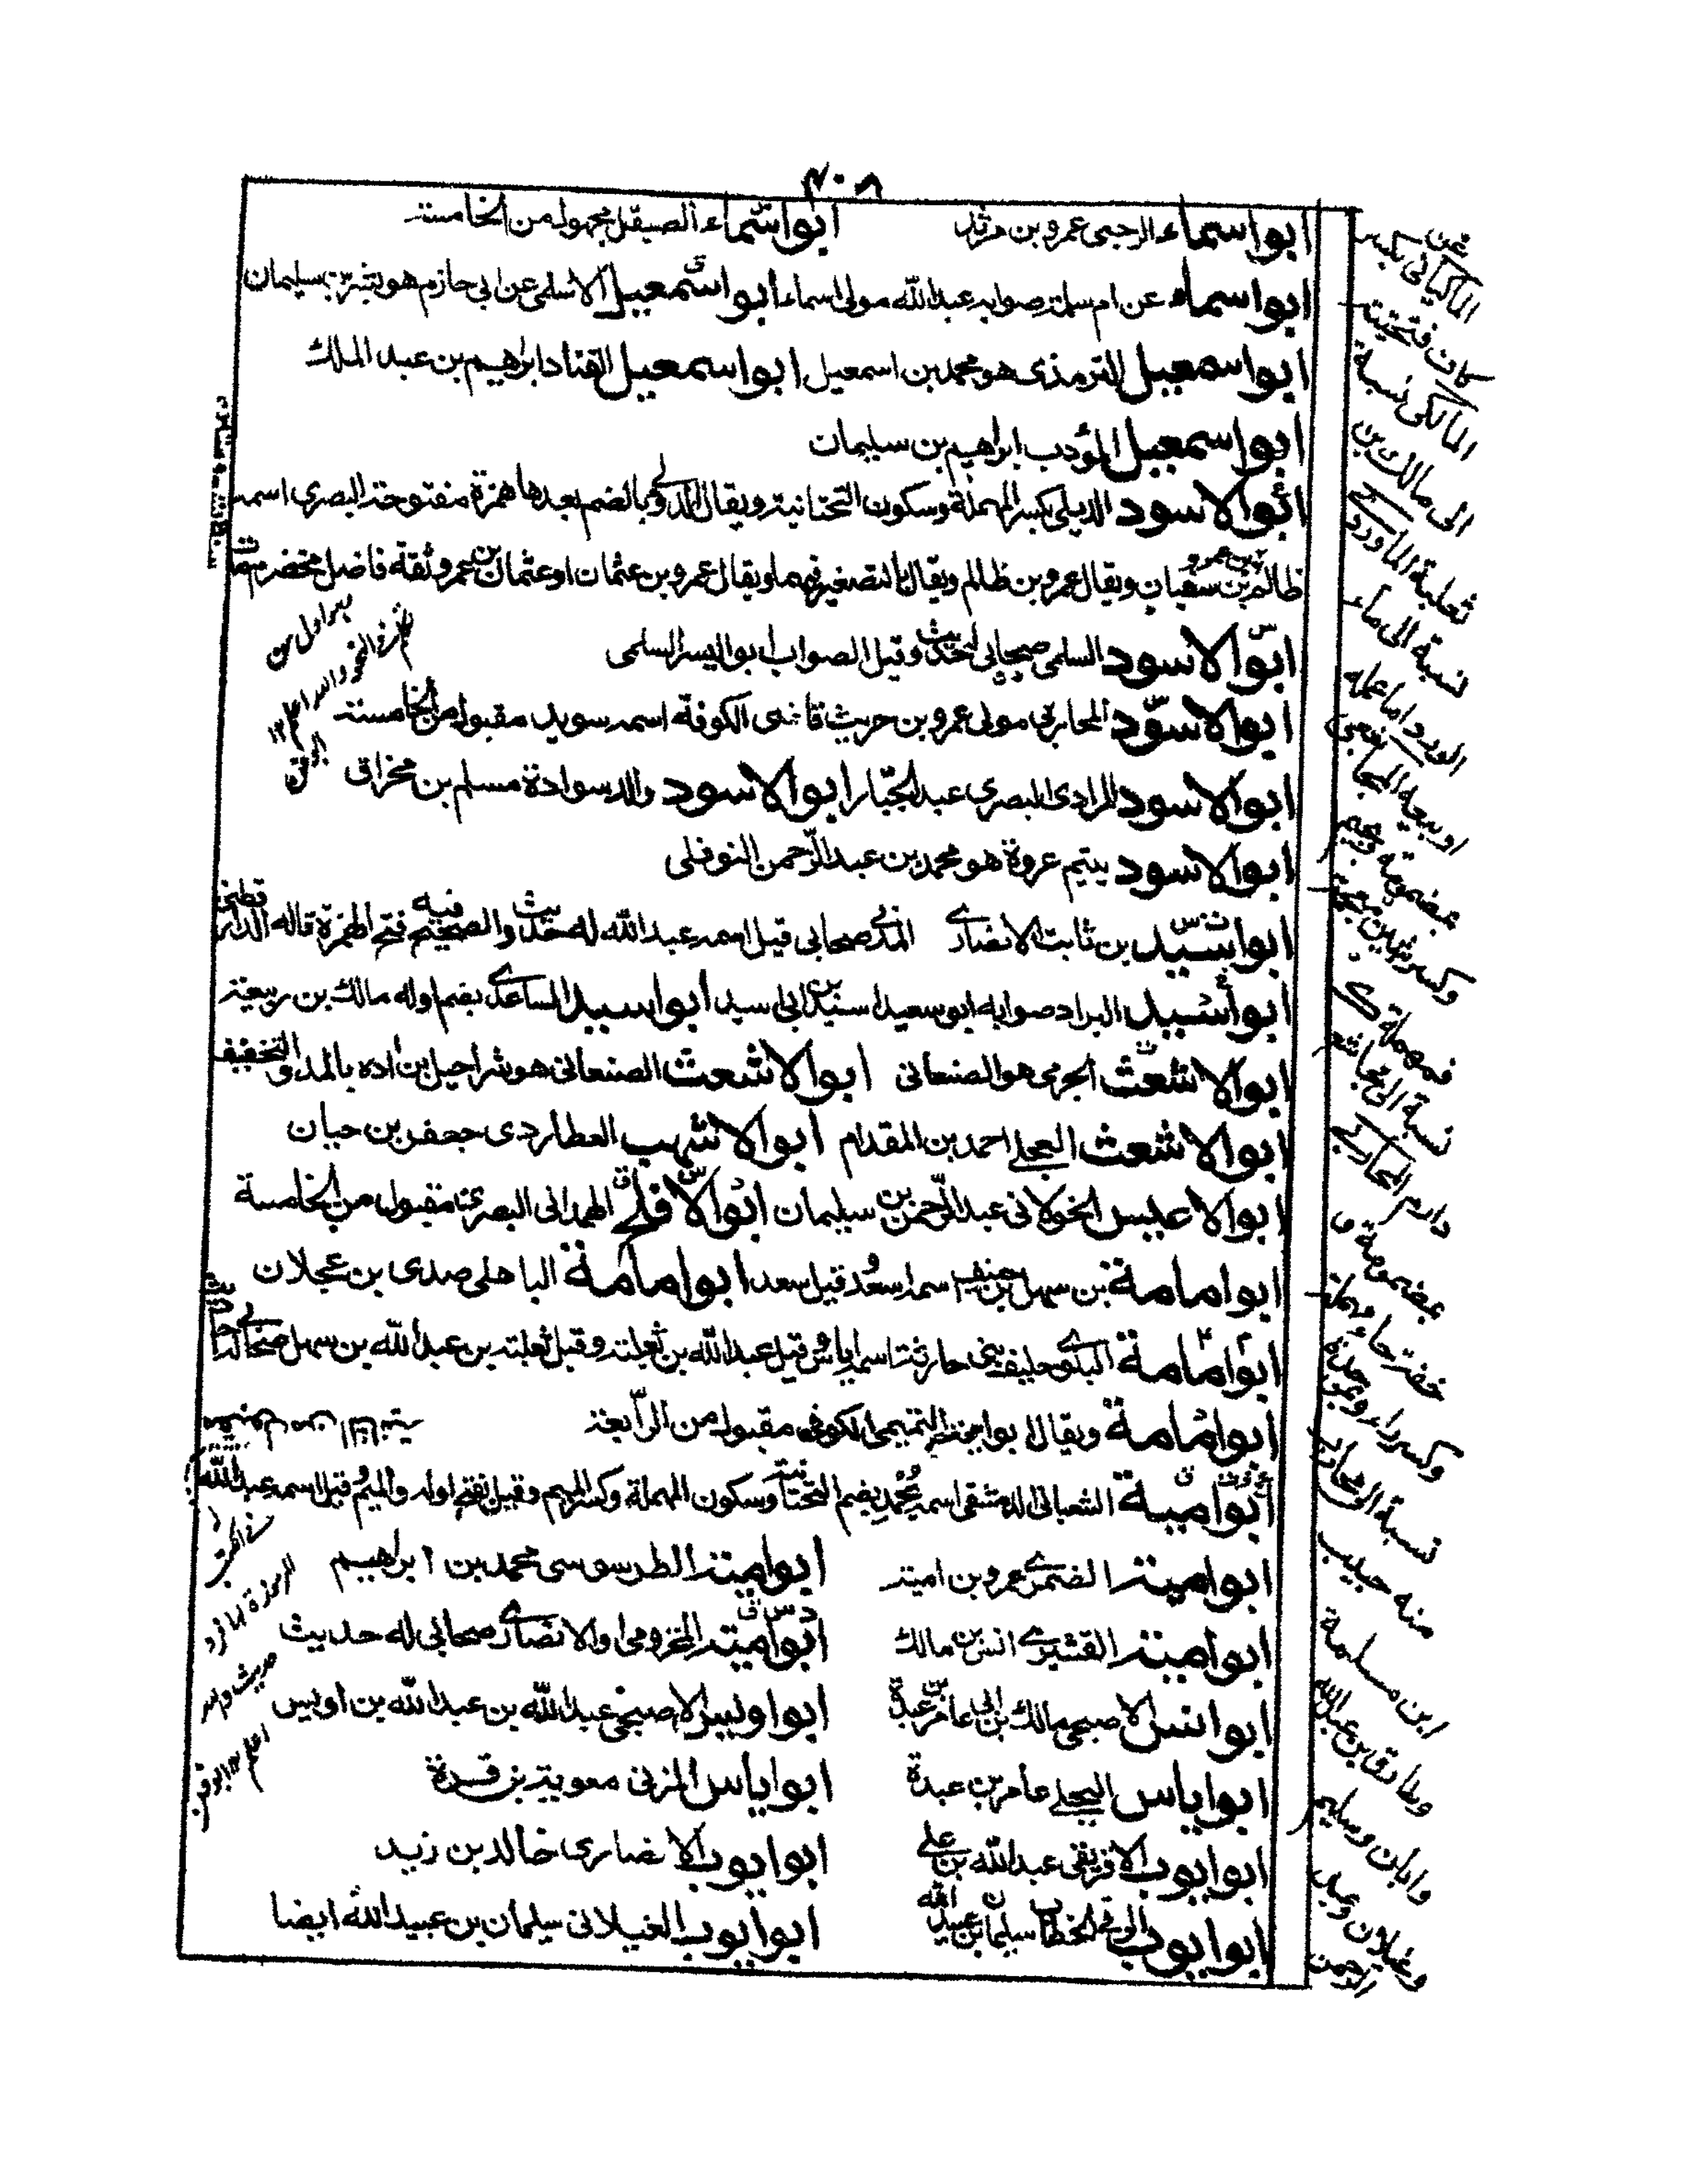 ٤٠٨
ابو اسماء الرحبى عمرو بن مرثد ابو اسماء الصيقل مجهول من الخامسة
ابو اسماء عن ام سلمة صوابه عبد الله مولى اسماء ابو اسمعيل الاسلمى عن ابى حازم هو بشير بن سليمان
ابو اسمعيل الترمذى هو محمد بن اسمعيل ابو اسمعيل القناد ابراهيم بن عبد الملك
ابو اسمعيل المؤدب ابراهيم بن سليمان
ابو الاسود الديلى بكسر المهملة وسكون التحتانية ويقال الدؤلى بالضم بعدها همزة مفتوحة البصرى اسمه
ظالم بن عمرو بن سفيان ويقال عمرو بن ظالم ويقال بالتصغير فيهما ويقال عمرو بن عثمان او عثمان بن عمرو ثقة فاضل مخضرم مات
ابو الاسود السلمى صحابى له حديث وقيل الصواب ابو اليسر السلمى
ابو الاسود المحاربى مولى عمرو بن حريث قاضى الكوفة اسمه سويد مقبول من الخامسة
ابو الاسود المرادى البصرى عبد الجبار ابو الاسود والد سوادة مسلم بن مخراق
ابو الاسود يتيم عروة هو محمد بن عبد الرحمن النوفلى
ابو اسيد بن ثابت الانصارى المدنى صحابى قيل اسمه عبد الله له حديث والصحيح فيه فتح الهمزة قاله الدارقطنى
ابو اسيد البراد صوابه ابو سعيد اسيد بن ابى اسيد ابو اسيد الساعدى بضم اوله مالك بن ربيعة
ابو الاشعث الجرمى هو الصنعانى ابو الاشعث الصنعانى هو شراحيل بن اده بالمد والتخفيف
ابو الاشعث العجلى احمد بن المقدام ابو الاشهب العطاردى جعفر بن حيان
ابو الاعيس الخولانى عبد الرحمن بن سليمان ابو الافلح الهمدانى البصرى مقبول من الخامسة
ابو امامة بن سهل بن حنيف اسمه اسعد وقيل سعد ابو امامة الباهلى صدى بن عجلان
ابو امامة البلوى حليف بنى حارثة اسمه اياس وقيل عبد الله بن ثعلبة وقيل ثعلبة بن عبد الله بن سهل صحابى له احاديث
ابو امامة ويقال ابو اميمة التميمى الكوفى مقبول من الرابعة
ابو امية الشعبانى الدمشقى اسمه يحمد بضم التحتانية وسكون المهملة وكسر الميم وقيل بفتح اوله والميم وقيل اسمه عبد الله
مقبول من الثانية
ابو امية الضمرى عمرو بن امية ابو امية الطرسوسى محمد بن ابراهيم
ابو امية القشيرى انس بن مالك ابو امية المخزومى او الانصارى صحابى له حديث
ابو انس الاصبحى مالك بن ابى عامر ابو اويس الاصبحى عبد الله بن عبد الله بن اويس
ابو اياس البجلى عامر بن عبدة ابو اياس المزنى معوية بن قرة
ابو ايوب الافريقى عبد الله بن على ابو ايوب الانصارى خالد بن زيد
ابو ايوب سليمان بن عبيد الله ابو ايوب الغيلانى سليمان بن عبيد الله ايضا
المالكى نسبة
الى مالك بن
ثعلبة الماوردى
نسبة الى ماء
الورد واما عمله
او بيعه
نسبة الى مجاشع
دارم المحاربى
مضمومة و
خفة حاء مهملة
وكسر راء وموحدة
نسبة الى محارب
منه حبيب
ابن مسلمة
وطارق بن عبد الله
وابان وسليم
وغيلان وعبد
الرحمن